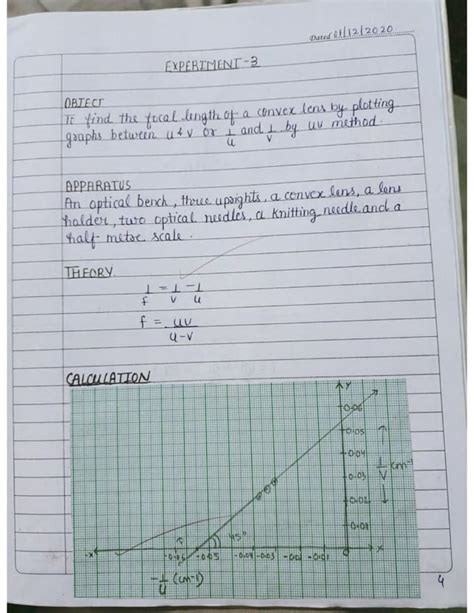 Dated 01/12/2020
EXPERIMENT-3
OBJECT
To find the focal length of a convex lens by plotting
graphs between u & v or 1/u and 1/v by uv method.
APPARATUS
An optical bench, three uprights, a convex lens, a lens
holder, two optical needles, a knitting needle and a
half metre scale.
THEORY
1/f = 1/v - 1/u
f = uv/u-v
CALCULATION
Y
0.06
0.05
0.04
1/v (cm-1)
0.03
0.02
0.01
45°
-X
-0.06 -0.05 -0.04 -0.03 -0.02 -0.01 0 X
-1/u (cm-1)
4